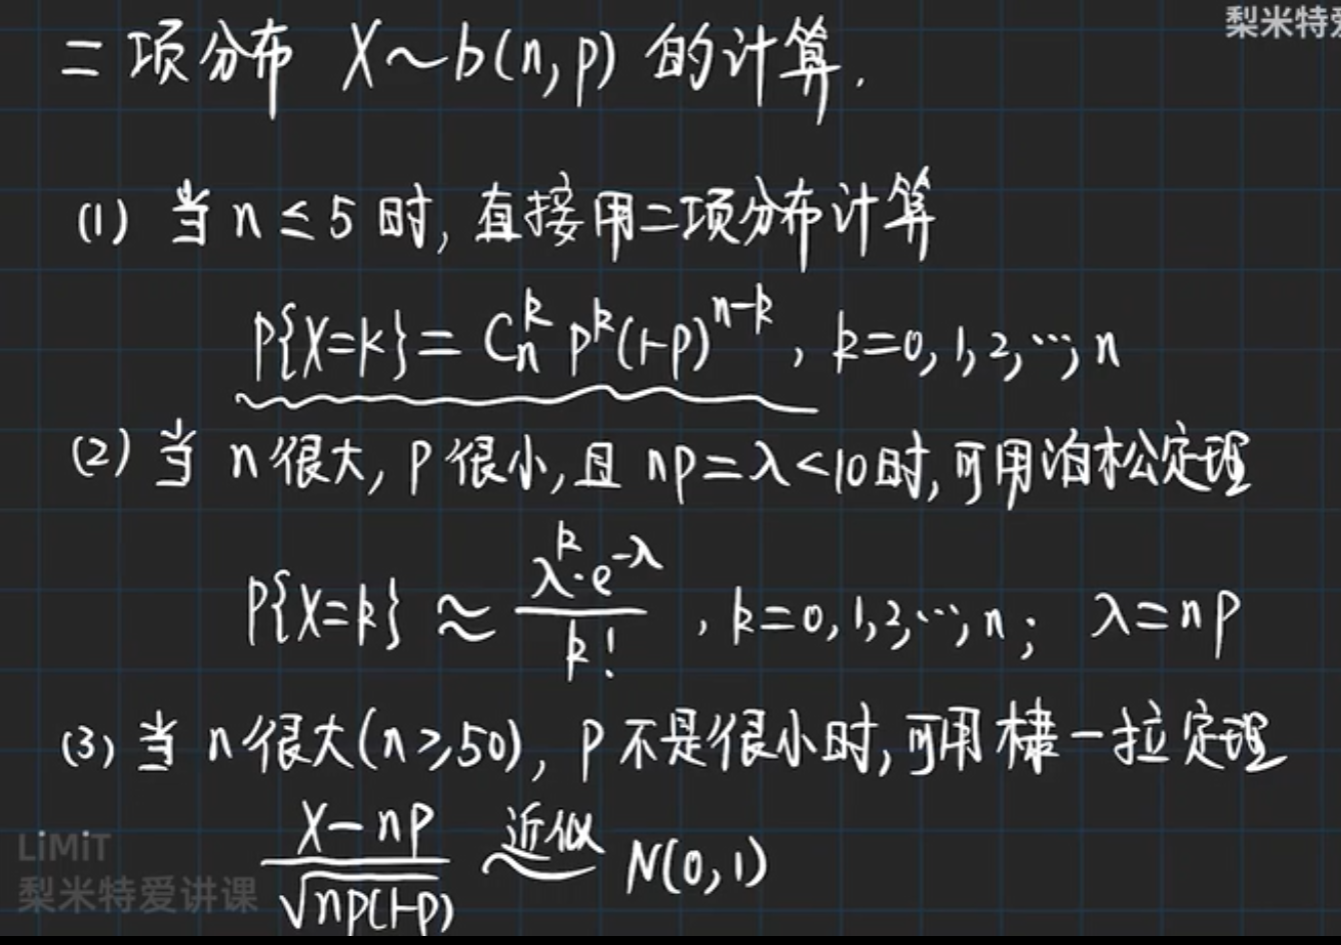 梨米特爱
二项分布 X~b(n,p) 的计算.
(1) 当 n≤5 时, 直接用二项分布计算
P{X=k}=C_n^k p^k(1-p)^{n-k}, k=0,1,2,…,n
(2) 当 n很大, p很小, 且 np=λ<10时, 可用泊松定理
P{X=k} ≈ \frac{λ^k·e^{-λ}}{k!}, k=0,1,2,…,n; λ=np
(3) 当 n很大(n≥50), p不是很小时, 可用棣-拉定理
\frac{X-np}{\sqrt{np(1-p)}} 近似~ N(0,1)
LiMiT
梨米特爱讲课